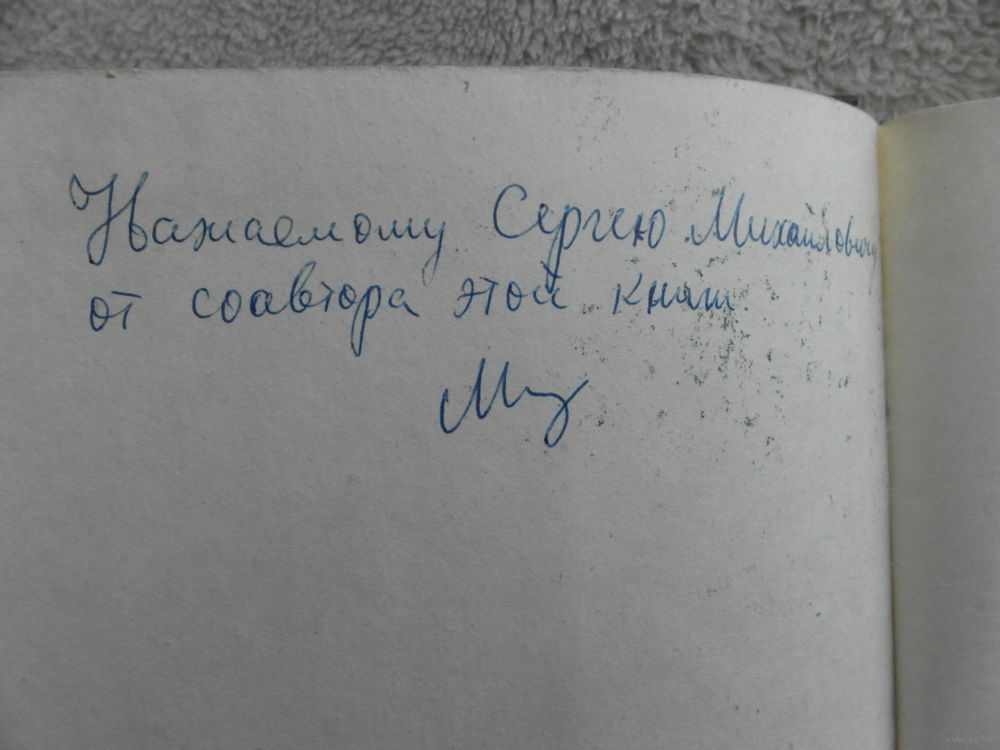 Уважаемому Сергею Михайловичу
от соавтора этой книги